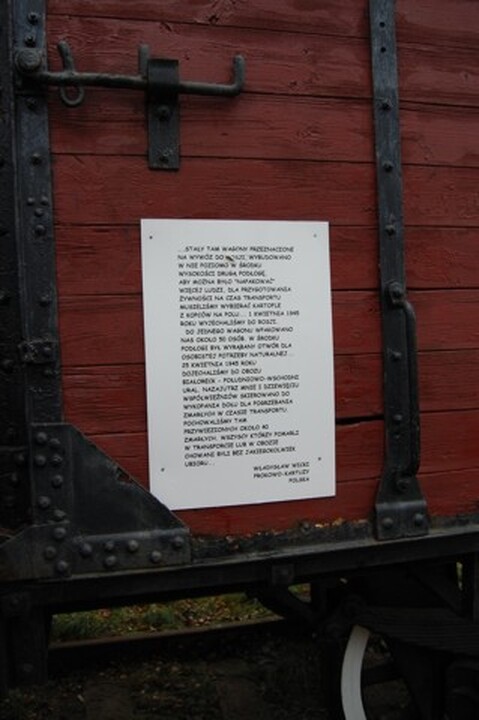 ...STAŁY TAM WAGONY PRZEZNACZONE
NA WYWÓZ DO ROSJI, WYBUDOWANO
W NIE POZIOMO W ŚRODKU
WYSOKOŚCI DRUGĄ PODŁOGĘ,
ABY MOŻNA BYŁO "NAPAKOWAĆ"
WIĘCEJ LUDZI, DLA PRZYGOTOWANIA
ŻYWNOŚCI NA CZAS TRANSPORTU
MUSIELIŚMY WYBIERAĆ KARTOFLE
Z KOPCÓW NA POLU... 1 KWIETNIA 1945
ROKU WYJECHALIŚMY DO ROSJI.
DO JEDNEGO WAGONU WPAKOWANO
NAS OKOŁO 50 OSÓB. W ŚRODKU
PODŁOGI BYŁ WYRĄBANY OTWÓR DLA
OSOBISTEJ POTRZEBY NATURALNEJ...
25 KWIETNIA 1945 ROKU
DOJECHALIŚMY DO OBOZU
BIAŁORECK - POŁUDNIOWO-WSCHODNI
URAL. NAZAJUTRZ MNIE I DZIEWIĘCIU
WSPÓŁWIĘŹNIÓW SKIEROWANO DO
WYKOPANIA DOŁU DLA POGRZEBANIA
ZMARŁYCH W CZASIE TRANSPORTU.
POCHOWALIŚMY TAM
PRZYWIEZIONYCH OKOŁO
ZMARŁYCH. WSZYSCY KTÓRZY POMARLI
W TRANSPORCIE LUB W OBOZIE
CHOWANI BYLI BEZ JAKIEGOKOLWIEK
UBIORU...
WŁADYSŁAW WICKI
PROKOWO-KARTUZY
POLSKA